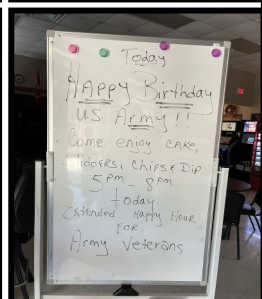 Today
HAPPY Birthday
U.S. Army!!
Come enjoy CAKE,
sliders, chips & Dip
5pm - 8pm
today
Extended Happy Hour
FOR
Army Veterans